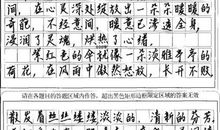 间，在心灵深处绽放出一朵朵暖暖的
奇葩，不经意间，暖意已渗透全身，
浸润了灵魂，烘热了心绪，
紫红色的伞就像一朵淡雅亭亭的
荷花，在风雨中傲然兀放，长开不败
请在各题目的答题区域内作答，超出黑色矩形边框限定区域的答案无效
散发着丝丝缕缕淡淡的、清新的芬芳